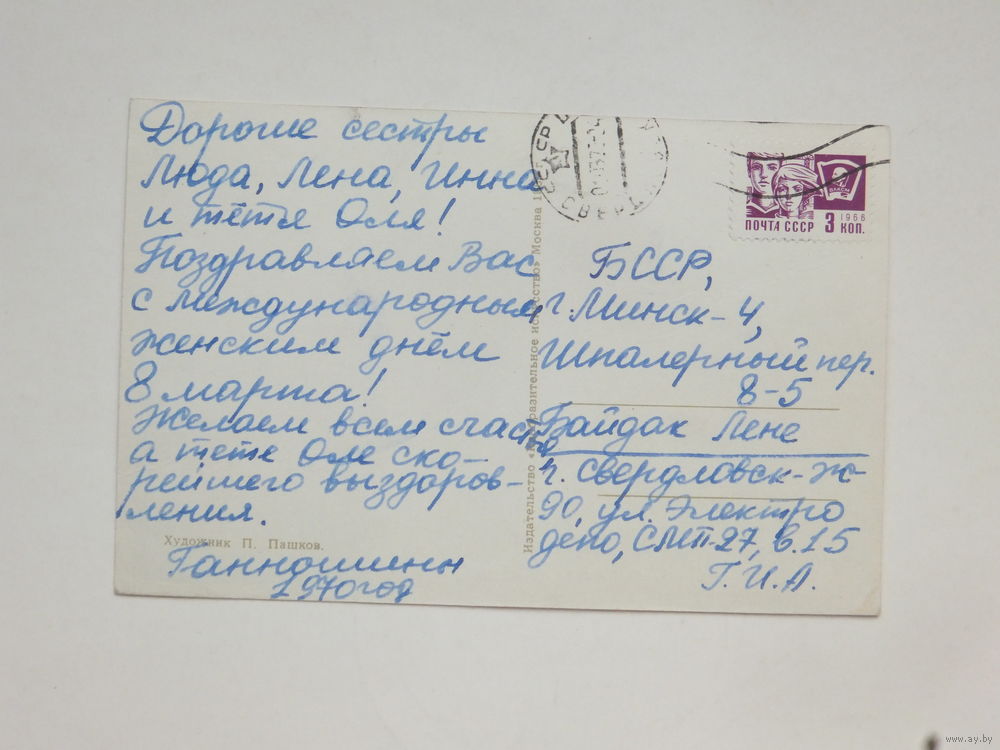 Дорогие сестры
Люда, Лена, Инна
и тётя Оля!
Поздравляем Вас
с международным
женским днём
8 марта!
Желаем всем счастья
а тёте Оле ско-
рейшего выздоров-
ления.
Художник П. Пашков.
1970 год
Издательство «Изобразительное искусство» Москва
СССР
ПОЧТА СССР 3 КОП.
1966
ВЛКСМ
БССР,
г. Минск-4,
Шпалерный пер.
8-5
Байдак Лене
г. Свердловск-Ж-
90, ул. Электро
депо, СМП-27, 6.15
Г. И. А.
www.ay.by